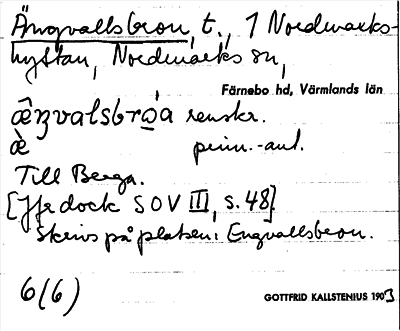 Ängvallsbron, t., 1 Nordmarks-
hyttan, Nordmarks sn,
Färnebo hd, Värmlands län
æ̂ŋvalsbrо̀a renskr.
æ̀ prim.-ant.
Till Berga.
[Jfr dock SOV III, s. 48]
Skrivs på platsen: Engvallsbron.
6(6)
GOTTFRID KALLSTENIUS 1903